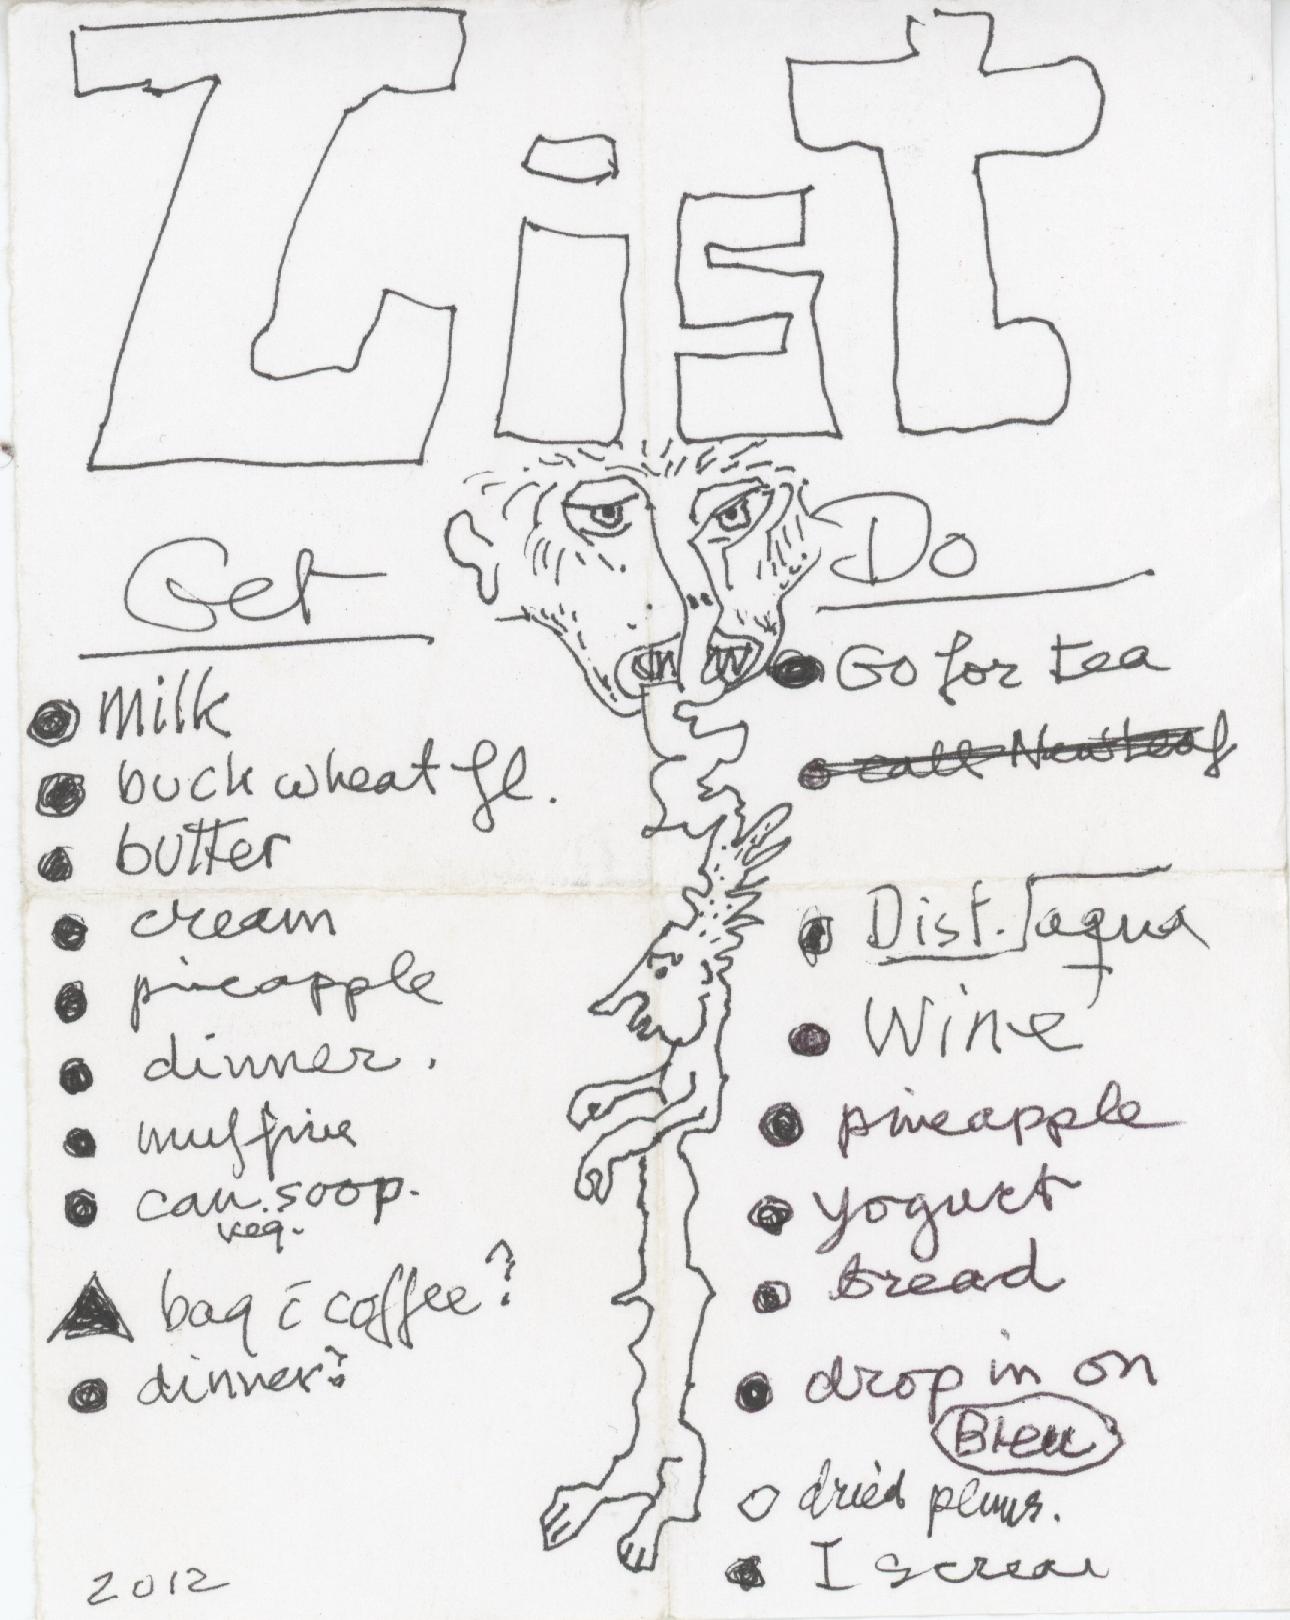 List
Get
milk
buckwheat fl.
butter
cream
pineapple
dinner.
muffins
can. soop.
veg.
bag c̄ coffee?
dinner?
2012
Do
Go for tea
call New Leaf
Dist. aqua
Wine
pineapple
yogurt
bread
drop in on
dried plums.
I scream